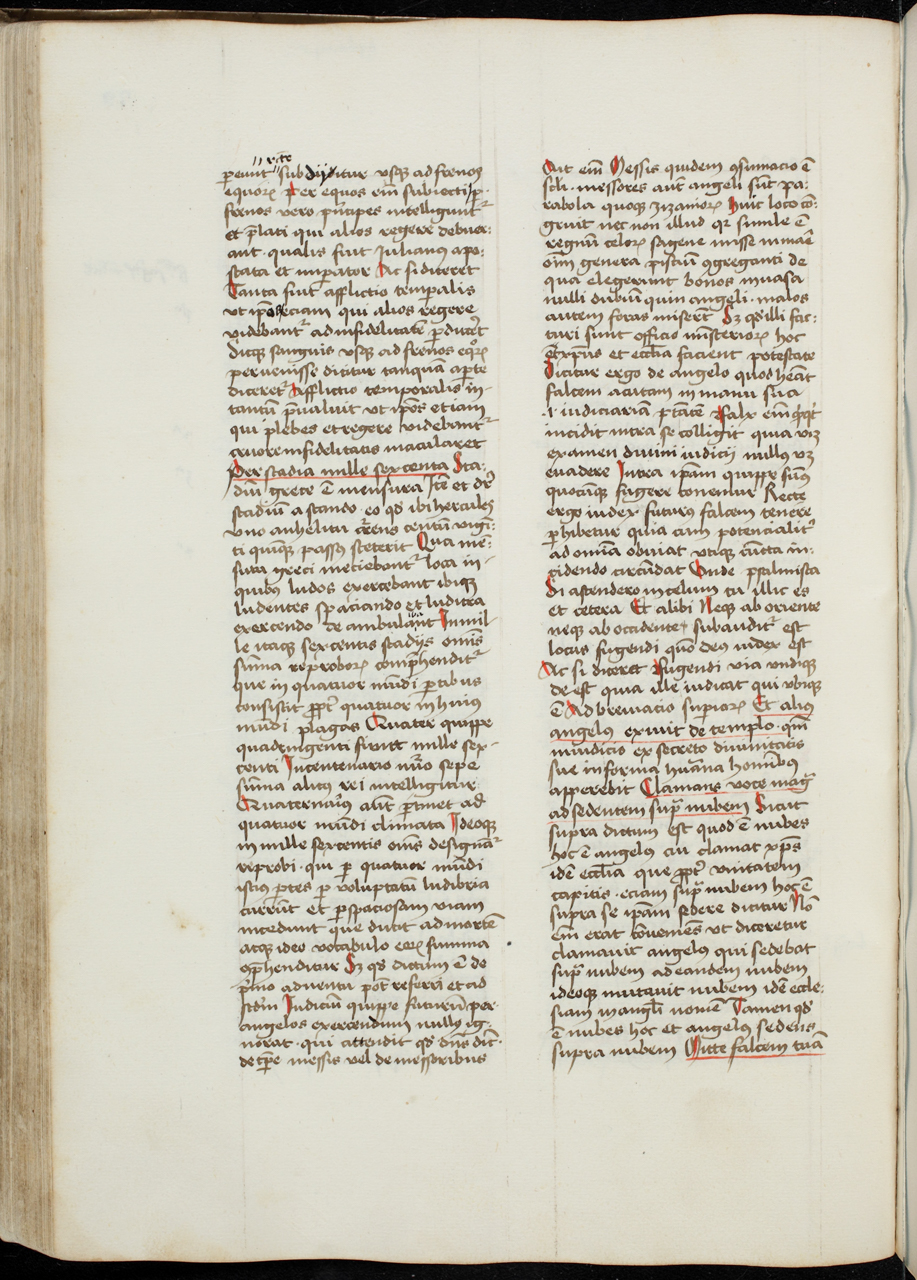 perennit subdijcitur vsqꝫ ad frenos
equoꝝ Per equos em̄ subiecti per
frenos vero p̄ncipes intelligunt᷑
et p̄lati qui alios regere debuer-
ant · qualis fuit Julianus apo-
stata et imperator Ac si diceret
Tanta fuit afflictio temporalis
vt ip̄os eciam qui alios regere
videbant᷑ ad infidelitatē perduceret
dicit᷑ sanguis vsqꝫ ad frenos eqͦꝝ
peruenisse dicitur tanquā aperte
diceret᷑ Afflictio temporalis in-
tantū p̄ualuit vt ip̄os etiam
qui plebes et regere videbant᷑
cruore infidelitatis macularet
Per stadia mille sexcenta Sta-
diū grece ē mensura Itē et dr̄
stadiū a stando · eo qd̓ ibi hercules
vno anhelitu c̄rens centū vigī-
ti quinqꝫ passꝯ steterit Qua mē-
sura greci meciebant᷑ loca in
quibꝯ ludos exercebant ibiqꝫ
ludentes spaciando et ludicra
exercendo de ambulant In mil-
le itaqꝫ sexcentis stadijs om̄is
sūma reproboꝝ comp̄hendit᷑
que in quatuor mūdi partibus
consistit ꝓpt̓ quatuor in huius
mūdi plagas Quater quippe
quadringenti fiunt mille sex-
centi In centenario nūo sepe
sūma alicꝯ rei intelligitur
Quaternariꝯ aūt ꝑtinet ad
quatuor mūdi climata Ideoqꝫ
in mille sexcentis om̄s designāt᷑
reprobi · qui per quatuor mūdi
istiꝯ ꝑtes per voluptatū ludibria
currūt et per spaciosam viam
incedunt que ducit ad mortē
atqꝫ ideo vocabulo eoꝝ summa
cōp̄henditur Sꝫ qd̓ dictum ē de
p̄mo aduentu pōt referri et ad
sc̄dm Judiciū quippe futurū per
angelos exercendum nullꝯ ig-
norat · qui attendit qd̓ dn̄s dic̄t
de tp̄e messis vel de messoribus
Ait em̄ Messis quidem ꝯsumacio ē
scl̄i · messores aūt angeli sūt pa-
rabola quoqꝫ zizanioꝝ Huic loco cō-
gruit nec non illud qꝛ simile ē
regnū celoꝝ sagene misse in maē
oīm genera pisciū ꝯgreganti de
qua elegerunt bonos in vasa
nulli dubiū quin angeli · malos
autem foras miser̄t Sꝫ qd̓ illi fac-
turi sunt officio ministerioꝝ hoc
et xp̄us et ecclia facient potestate
Dicitur ergo de angelo quod heāt
falcem acutam in manu sua
·i· iudiciariā ptātē Falx em̄ qͥcqͥd
incidit intra se colligit quia vꝫ
examen diuini iudicij nullus vꝫ
euadere Intra ip̄am quippe sumꝯ
quocūqꝫ fugere conemur Recte
ergo iudex futurꝯ falcem tenere
perhibetur quia cum potencialit̓
ad omīa obuiat vtiqꝫ cūcta in-
cidendo circūdat Vnde psalmista
Si ascendero in celum tu illic es
et cetera Et alibi Neqꝫ ab oriente
neqꝫ ab occidente subaudit᷑ est
locus fugendi quō deꝯ iudex est
Ac si diceret Fugendi via vndiqꝫ
de est quia ille iudicat qui vbiqꝫ
ē Ad breuiacio superioꝝ Et aliꝯ
angelꝯ exiuit de templo · qm̄
in iudicio ex secreto diuinitatis
sue in forma hūana hominibꝯ
apperebit Clamans voce mag̓
ad sedentem sup̓ nubem Sicut
supra dictum est quod ē nubes
hoc ē angelꝯ cui clamat xp̄s
idē ecclīa que ꝓpt̓ vnitatem
capitis · eciam sup̓ nubem hoc ē
supra se ip̄am sedere dicitur Nō
em̄ erat cōueniēs vt diceretur
clamauit angelꝯ qui sedebat
sup̓ nubem ad eandem nubem
ideoqꝫ mutauit nubem idē eccle-
siam in angli nomē Tamen qd̓
ē nubes hoc et angelꝯ sedens
supra nubem Mitte falcem tuā